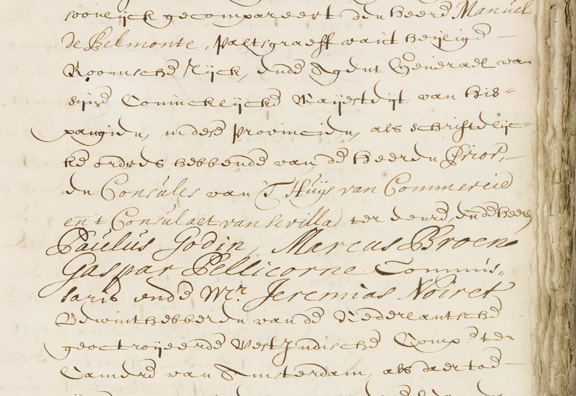 soonlijck gecompareert den heere Manuel
de Belmonte, paltsgraeff van't heijlige
Roomsche Rijck, ende Agent Generael van
sijne Conincklijcke Majesteijt van His-
pangien, in dese provincien, als schriftelijc-
ke ordres hebbende van de heeren Prior,
en Consules van T Huijs van Commercie
en t Consulaet van Sevilla ter eenre, ende heeren
Paulus Godin, Marcus Broen
Gaspar Pellicorne Commis-
saris ende Mr. Jeremias Noiret
Bewinthebberen van de Nederlantsche
geoctroijeerde West Indische Compe ter
Camere van Amsterdam, als daer toe